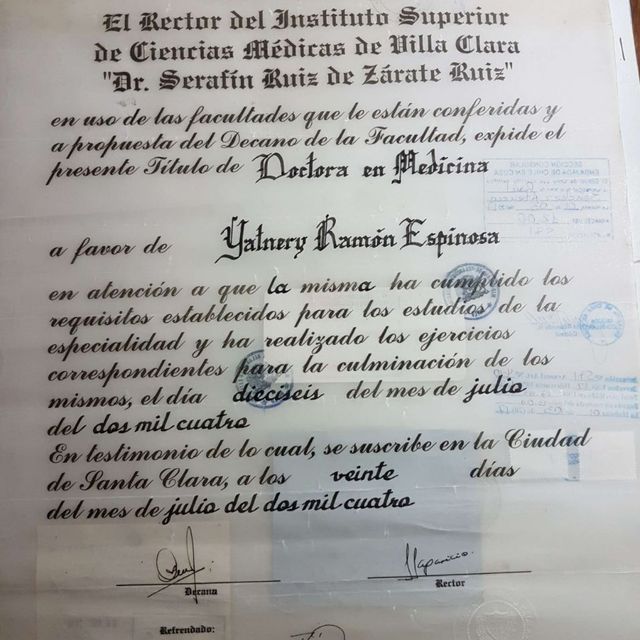 El Rector del Instituto Superior
de Ciencias Médicas de Villa Clara
"Dr. Serafín Ruiz de Zárate Ruiz"
en uso de las facultades que le están conferidas y
a propuesta del Decano de la Facultad, expide el
presente Título de Doctora en Medicina
a favor de Yatnery Ramón Espinosa
en atención a que la misma ha cumplido los
requisitos establecidos para los estudios de la
especialidad y ha realizado los ejercicios
correspondientes para la culminación de los
mismos, el día dieciseis del mes de julio
del dos mil cuatro
En testimonio de lo cual, se suscribe en la Ciudad
de Santa Clara, a los veinte días
del mes de julio del dos mil cuatro
Decana
Rector
Refrendado: